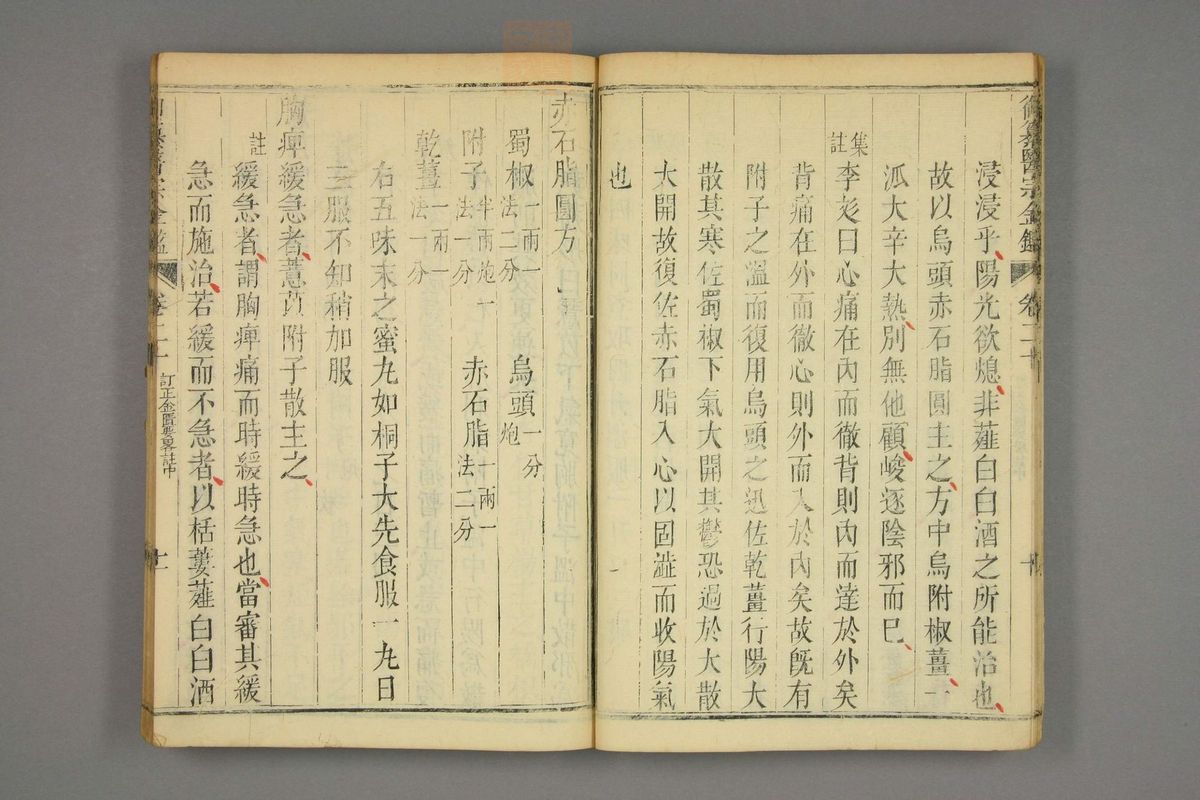 御纂醫宗金鑑 卷二十 十
浸浸乎陽光欲熄非薤白白酒之所能治也
故以烏頭赤石脂圓主之方中烏附椒薑一
派大辛大熱別無他顧峻逐陰邪而已
集註 李彣曰心痛在內而徹背則內而達於外矣
背痛在外而徹心則外而入於內矣故旣有
附子之溫而復用烏頭之迅佐乾薑行陽大
散其寒佐蜀椒下氣大開其鬱恐過於大散
大開故復佐赤石脂入心以固澁而收陽氣
也
赤石脂圓方
蜀椒一兩一法二分 烏頭一分炮
附子半兩炮一法一分 赤石脂一兩一法二分
乾薑一兩一法一分
右五味末之蜜丸如桐子大先食服一丸日
三服不知稍加服
胸痺緩急者薏苡附子散主之
註 緩急者謂胸痺痛而時緩時急也當審其緩
急而施治若緩而不急者以栝蔞薤白白酒
醫宗金鑑 卷二十 訂正金匱要畧註中 十一